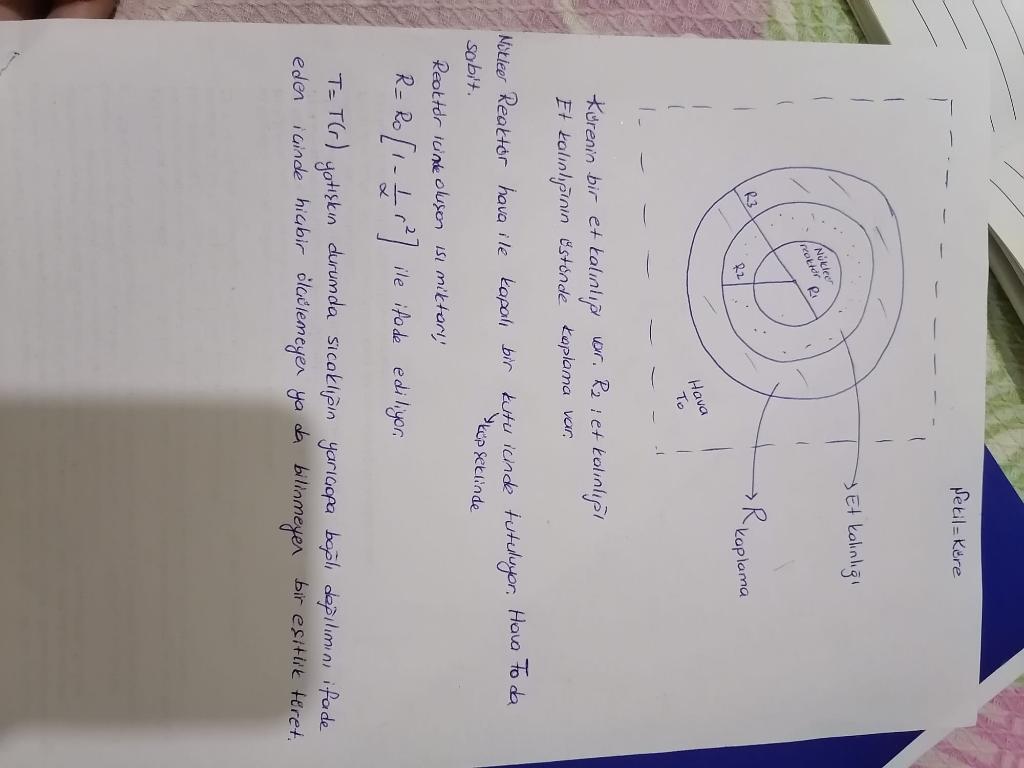 Şekil = Küre
Et kalınlığı
R kaplama
Nükleer
reaktör R1
R2
R3
Hava
T0
Kürenin bir et kalınlığı var. R2 : et kalınlığı
Et kalınlığının üstünde kaplama var.
Nükleer Reaktör hava ile kapalı bir kutu içinde tutuluyor. Hava T0 da
küp şeklinde
sabit.
Reaktör içinde oluşan ısı miktarı;
R = R0 [ 1 - 1/α r² ] ile ifade ediliyor.
T = T(r) yatışkın durumda sıcaklığın yarıçapa bağlı dağılımını ifade
eden içinde hiçbir ölçülemeyen ya da bilinmeyen bir eşitlik türet.